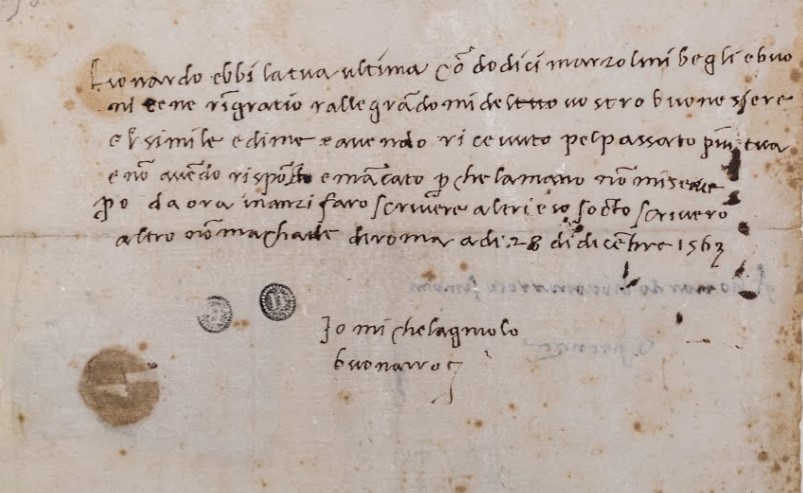 Lionardo ebbi la tua ultima cō dodici marzolini begli e buo
ni te ne rīgratio rallegrādomi del vostro buone siere
e l simile e di me e avendo ricevuto pel passato più tua
e nō avēdo risposto e mācato p che la mano nō mi serve
po da ora inanzi farò scrivere altri e io soctoscriverò
altro nō machade di roma a dì 28 di dicēbre 1563
Io michelagniolo
buonarroti